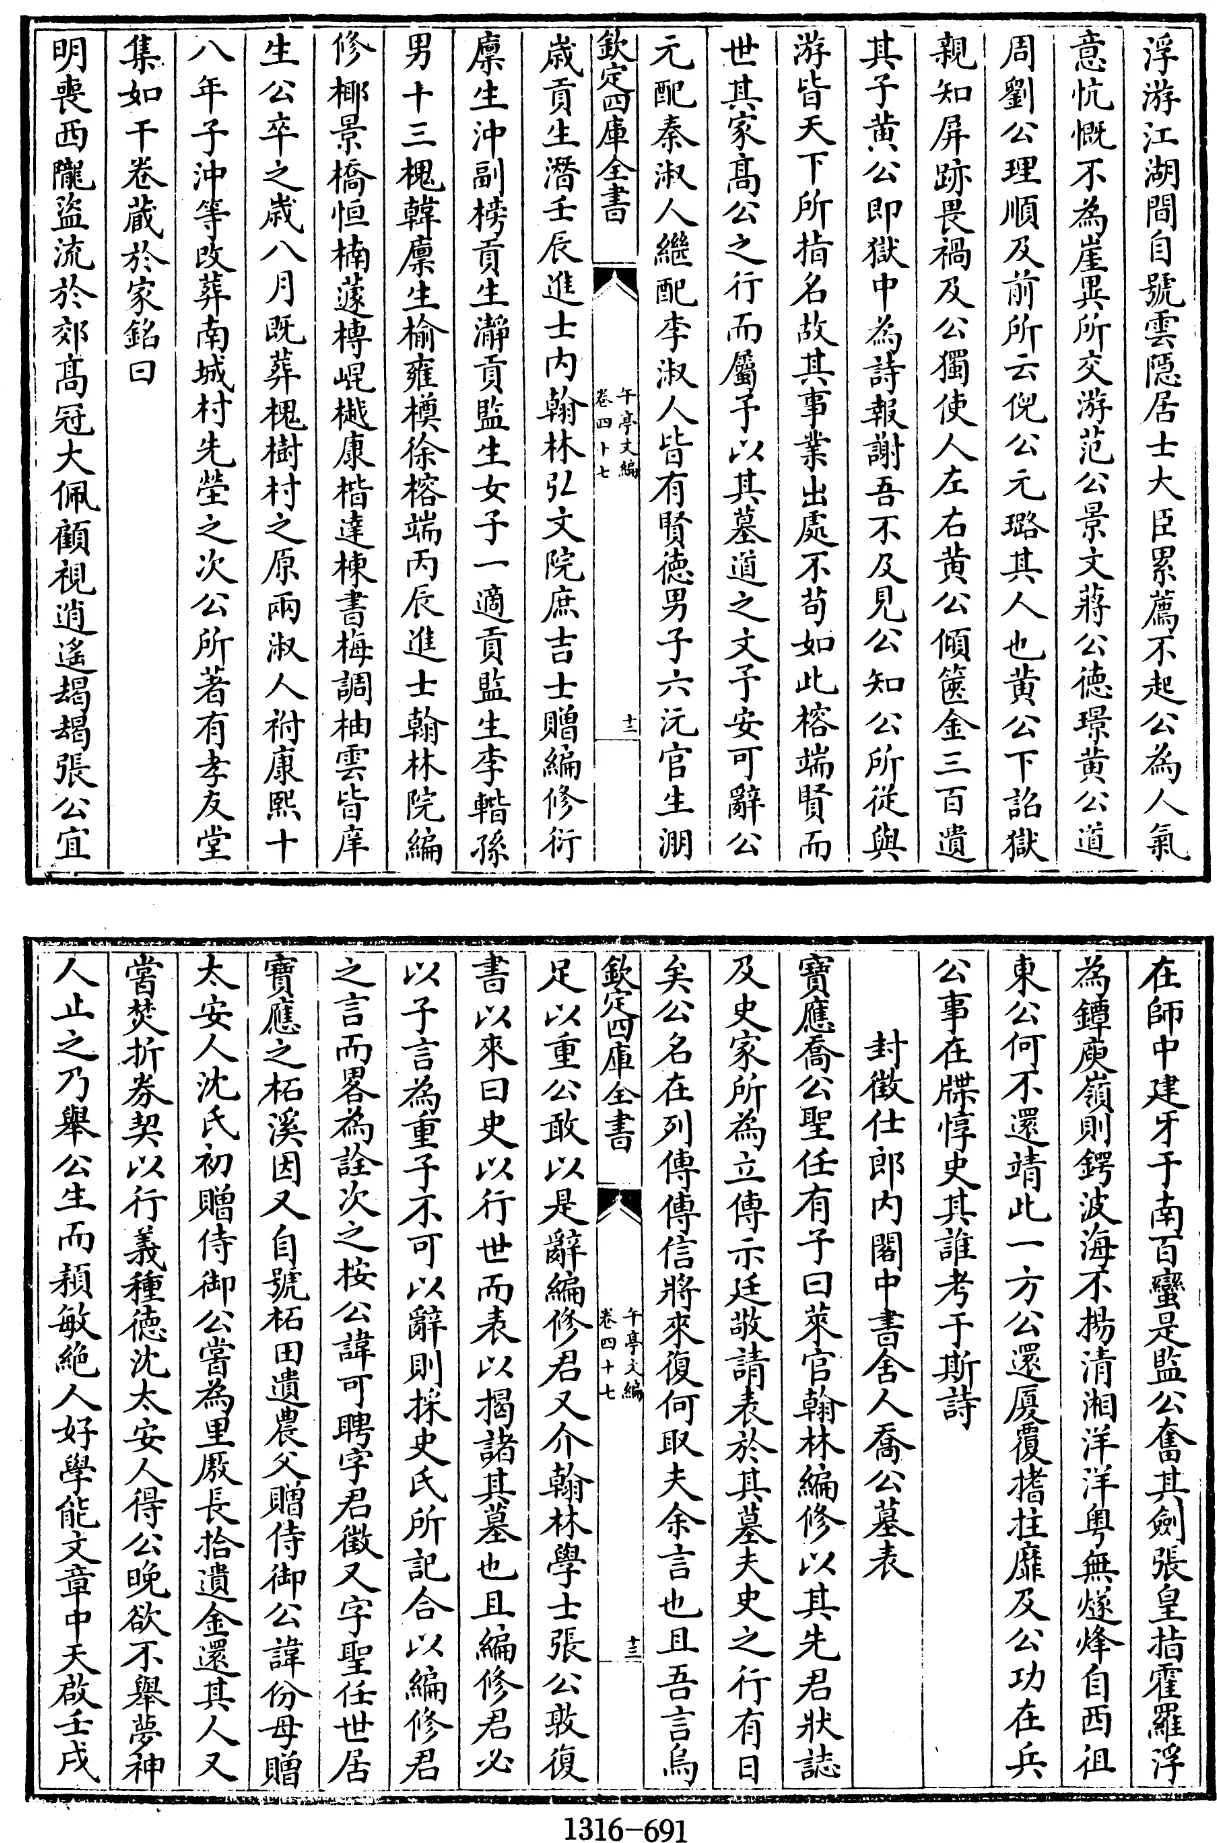 浮游江湖間自號雲隱居士大臣累薦不起公為人氣
意忼慨不為崖異所交游范公景文蔣公徳璟黄公道
周劉公理順及前所云倪公元璐其人也黄公下詔獄
親知屏跡畏禍及公獨使人左右黄公傾篋金三百遺
其子黄公即獄中為詩報謝吾不及見公知公所從與
游皆天下所指名故其事業出處不苟如此榕端賢而
世其家髙公之行而屬予以其墓道之文予安可辭公
元配秦淑人繼配李淑人皆有賢徳男子六沅官生淜
欽定四庫全書
午亭文編
卷四十七
十二
歳貢生潛壬辰進士内翰林弘文院庶吉士贈編修衍
廪生沖副榜貢生瀞貢監生女子一適貢監生李輶孫
男十三槐韓廪生榆雍橂徐榕端丙辰進士翰林院編
修梛景橋恒楠蘧榑崐樾康楷達棟書梅調柚雲皆庠
生公卒之歳八月既葬槐樹村之原兩淑人祔康熙十
八年子沖等改葬南城村先塋之次公所著有孝友堂
集如干卷蔵於家銘曰
明喪西隴盜流於郊髙冠大佩顧視逍遙朅朅張公宜
在師中建牙于南百蠻是監公奮其劍張皇掊霍羅浮
為鐔庾嶺則鍔波海不揚清湘洋洋粤無燧烽自西徂
東公何不還靖此一方公還厦覆搘拄靡及公功在兵
公事在牒惇史其誰考于斯詩
封徴仕郎内閣中書舍人喬公墓表
寶應喬公聖任有子曰萊官翰林編修以其先君狀誌
及史家所為立傳示廷敬請表於其墓夫史之行有日
矣公名在列傳傳信將來復何取夫余言也且吾言烏
欽定四庫全書
午亭文編
卷四十七
十三
足以重公敢以是辭編修君又介翰林學士張公敦復
書以來曰史以行世而表以揭諸其墓也且編修君必
以子言為重子不可以辭則採史氏所記合以編修君
之言而畧為詮次之按公諱可聘字君徴又字聖任世居
寶應之柘溪因又自號柘田遺農父贈侍御公諱份母贈
太安人沈氏初贈侍御公嘗為里廒長拾遺金還其人又
嘗焚折券契以行義種徳沈太安人得公晚欲不舉夢神
人止之乃舉公生而穎敏絶人好學能文章中天啟壬戌
1316-691